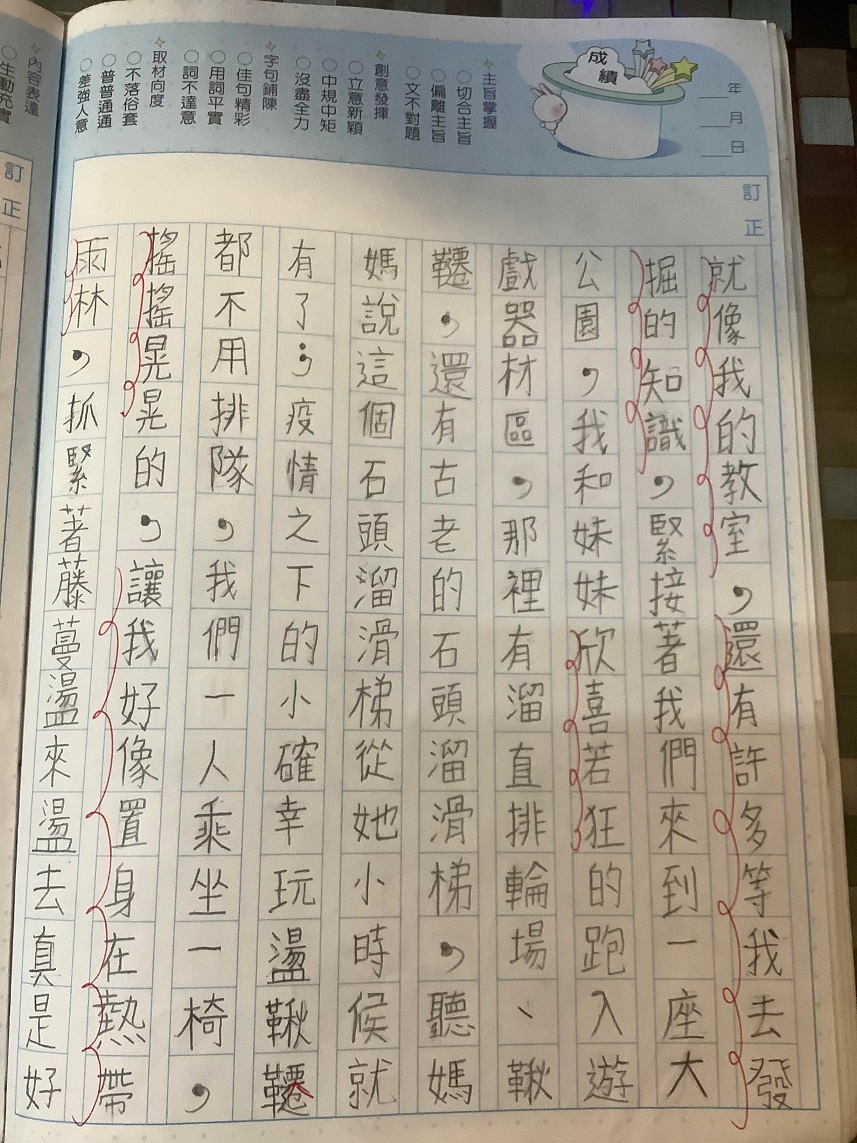 年
月
日
成績
主旨掌握
○切合主旨
○偏離主旨
○文不對題
創意發揮
○立意新穎
○中規中矩
○沒盡全力
字句鋪陳
○佳句精彩
○用詞平實
○詞不達意
取材向度
○不落俗套
○普普通通
○差強人意
內容表達
○生動充實
訂正
訂正
就像我的教室，還有許多等我去發
掘的知識，緊接著我們來到一座大
公園，我和妹妹欣喜若狂的跑入遊
戲器材區，那裡有溜直排輪場、鞦
韆，還有古老的石頭溜滑梯，聽媽
媽說這個石頭溜滑梯從她小時候就
有了；疫情之下的小確幸玩盪鞦韆
都不用排隊，我們一人乘坐一椅，
搖搖晃晃的，讓我好像置身在熱帶
雨林，抓緊著藤蔓盪來盪去真是好